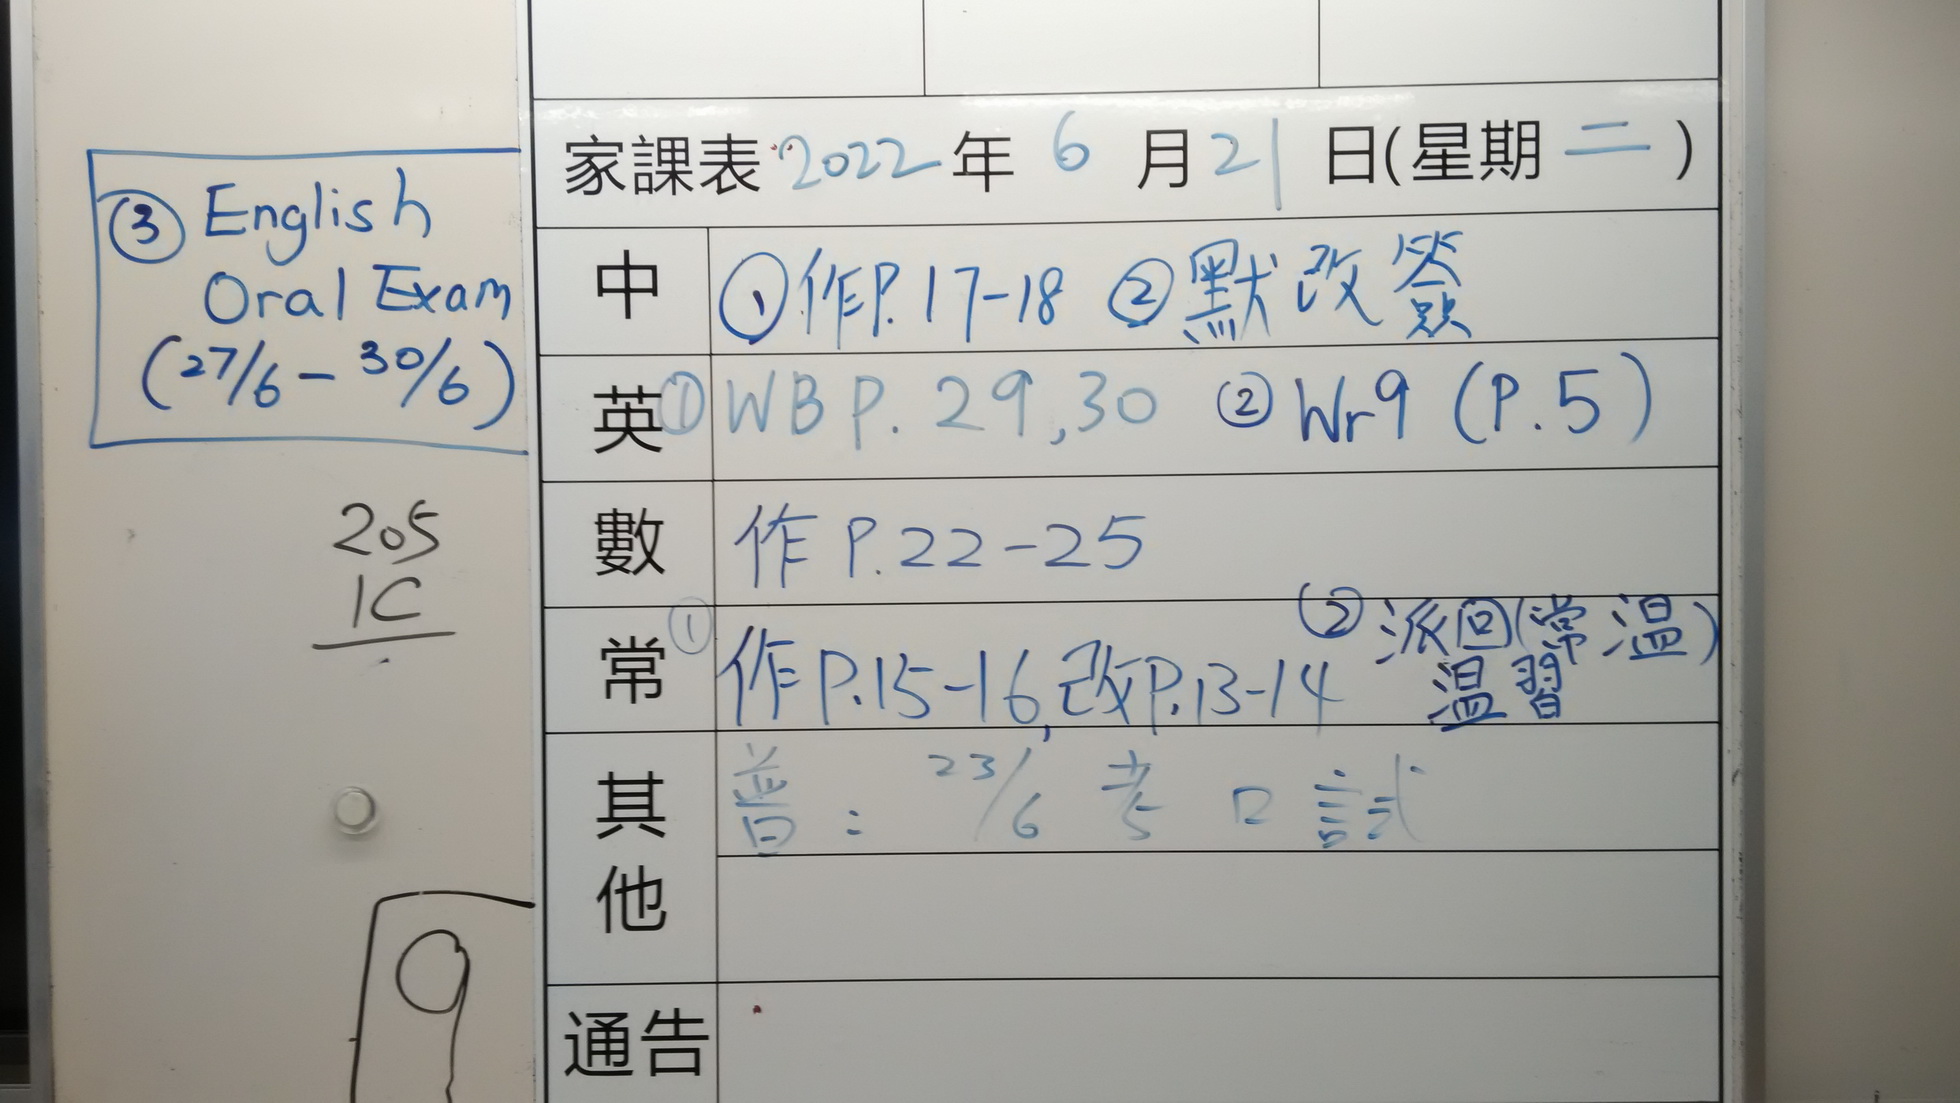 家課表 2022 年 6 月 21 日(星期 二 )
中 ①作P.17-18 ②默改簽
英 ①WB P. 29,30 ②Wr9 (P.5)
③ English
Oral Exam
(27/6 - 30/6)
數 作 P.22-25
常 ①作P.15-16,改P.13-14 ②派回(常溫)
溫習
其他 普: 23/6 考口試
通告
205
1C
9